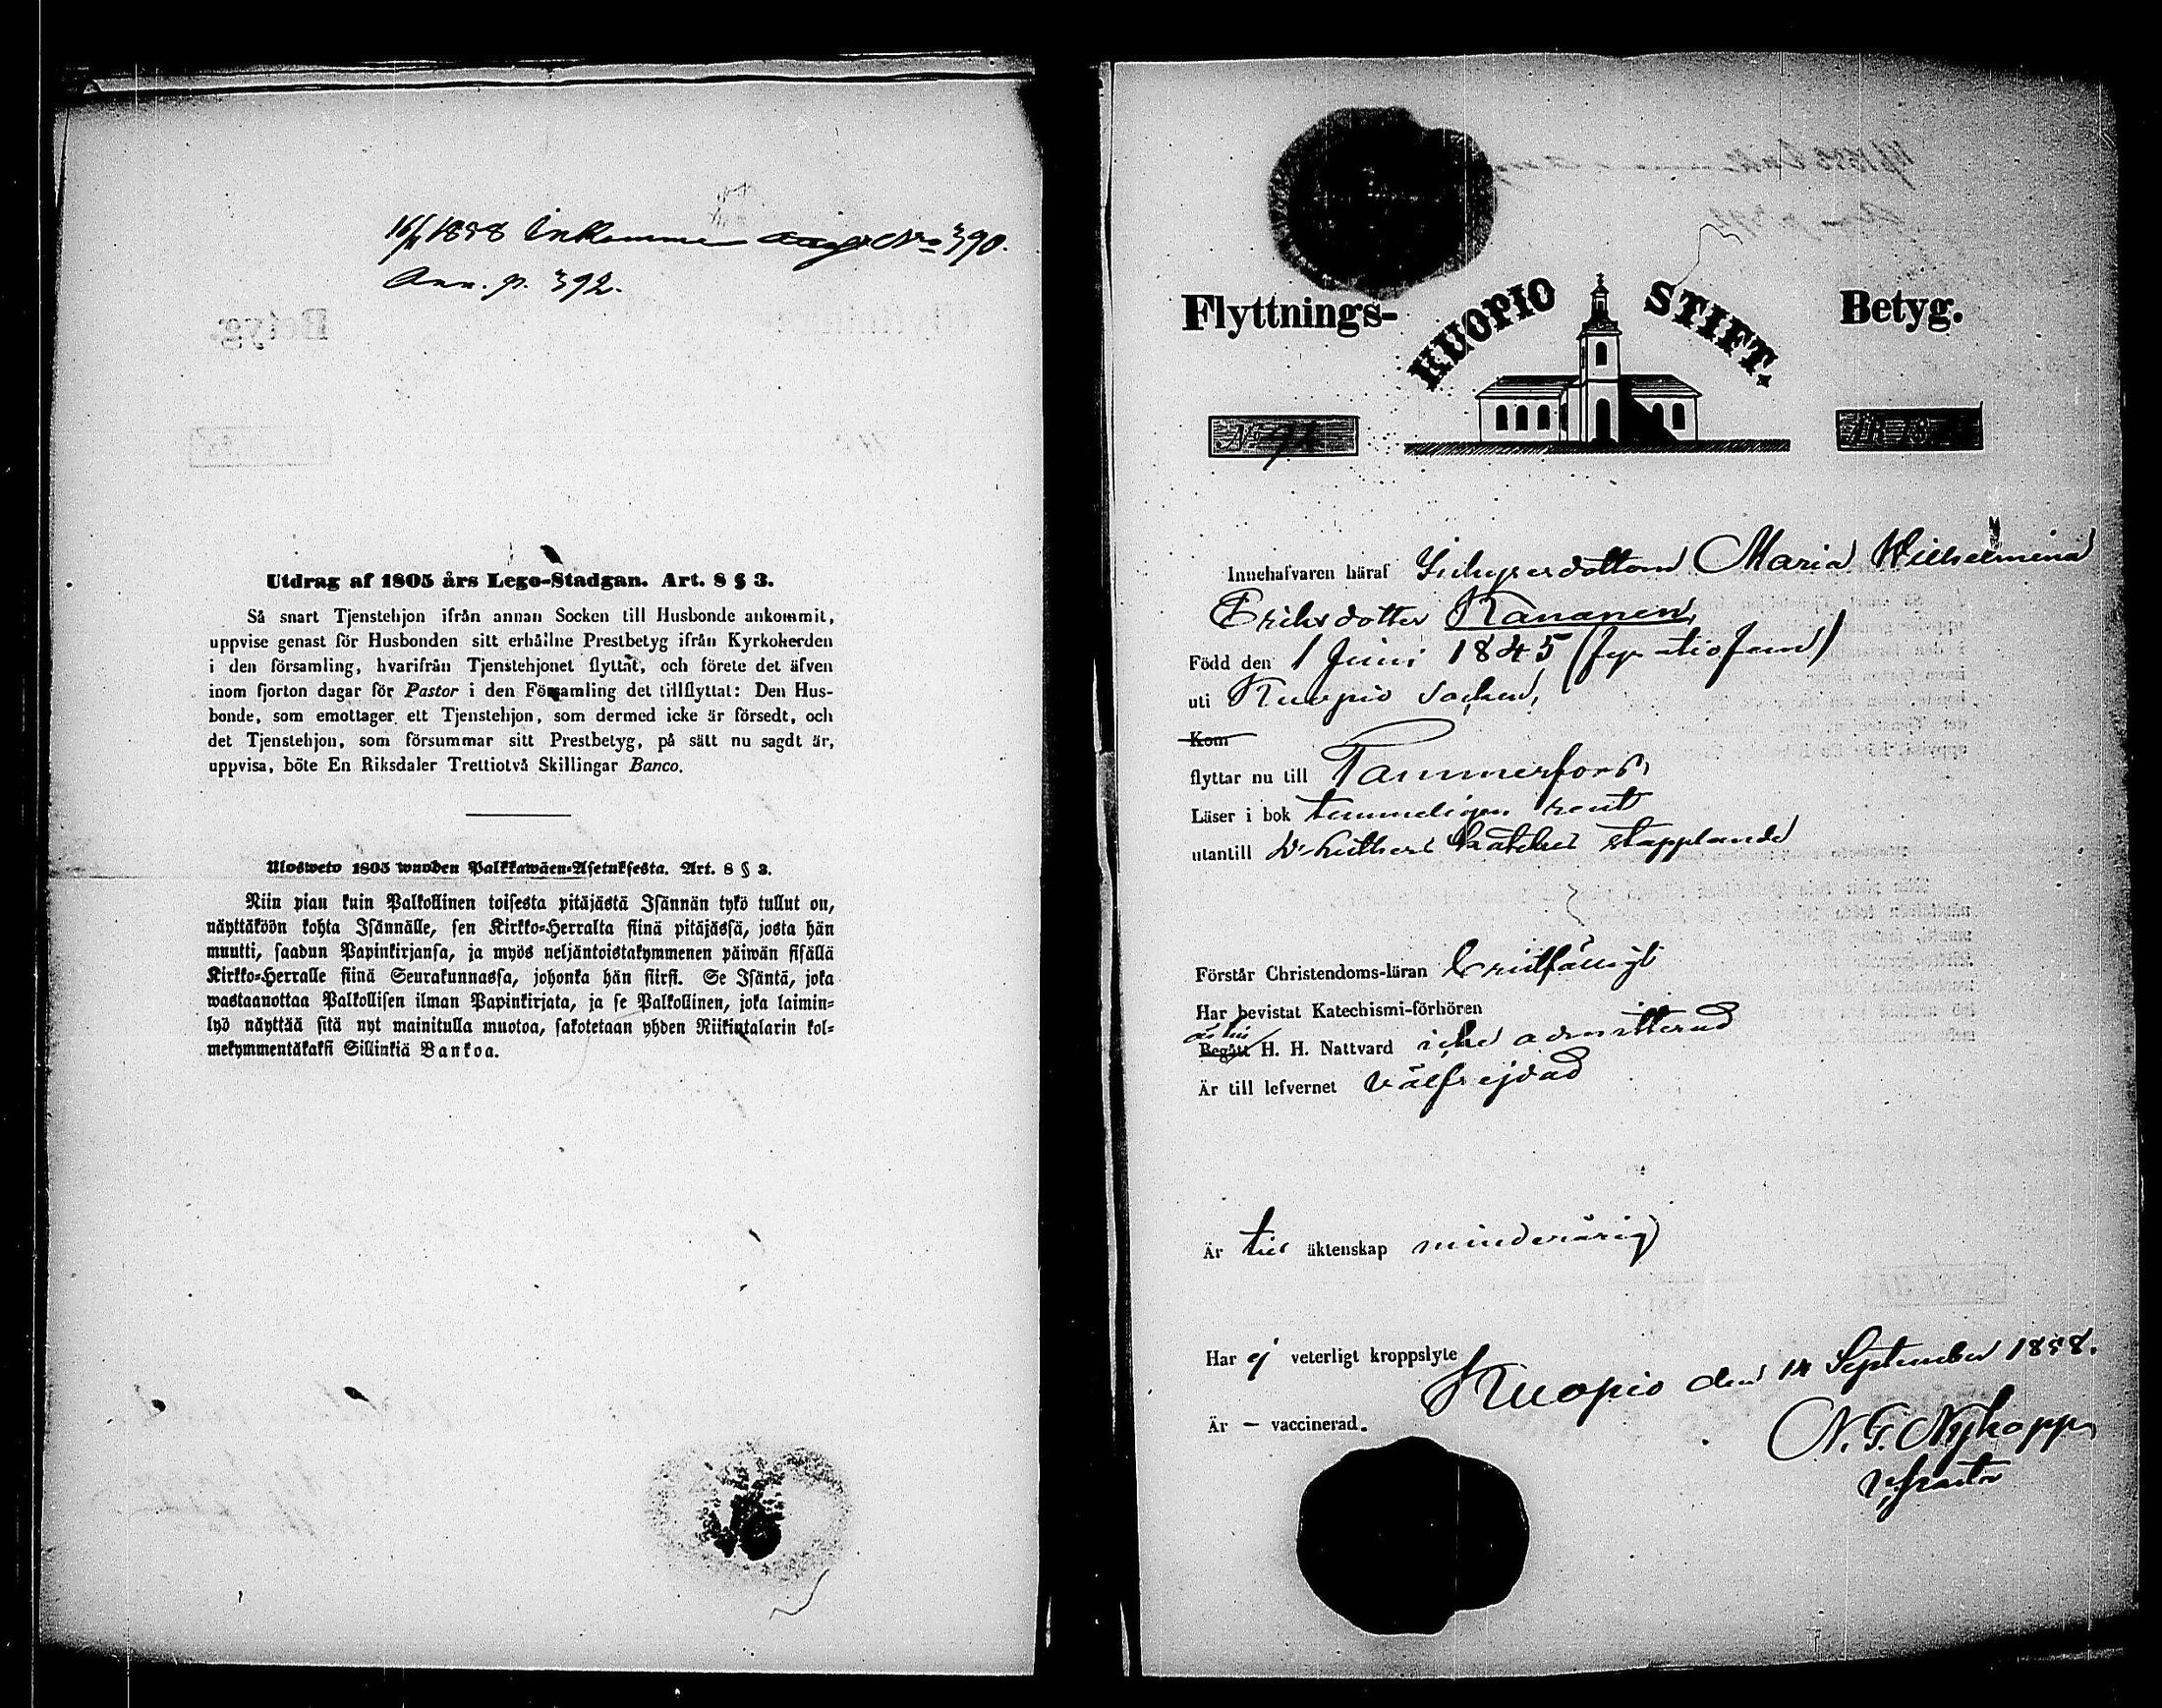 16/11 1858 Inkommen N:o 390.
Ann. p. 392.
Utdrag af 1805 års Lego-Stadgan. Art. 8 § 3.
Så snart Tjenstehjon ifrån annan Socken till Husbonde ankommit,
uppvise genast för Husbonden sitt erhållne Prestbetyg ifrån Kyrkoherden
i den församling, hvarifrån Tjenstehjonet flyttat, och förete det äfven
inom fjorton dagar för Pastor i den Församling det tillflyttat: Den Hus-
bonde, som emottager ett Tjenstehjon, som dermed icke är försedt, och
det Tjenstehjon, som försummar sitt Prestbetyg, på sätt nu sagdt är,
uppvisa, böte En Riksdaler Trettiotvå Skillingar Banco.
Ulosweto 1805 wuoden Palkkawäen-Asetuksesta. Art. 8 § 3.
Niin pian kuin Palkollinen toisesta pitäjästä Isännän tykö tullut on,
näyttäköön kohta Isännälle, sen Kirkko-Herralta siinä pitäjässä, josta hän
muutti, saadun Papinkirjansa, ja myös neljäntoistakymmenen päiwän sisällä
Kirkko-Herralle siinä Seurakunnassa, johonka hän siirsi. Se Isäntä, joka
wastaanottaa Palkollisen ilman Papinkirjata, ja se Palkollinen, joka laimin-
lyö näyttää sitä nyt mainitulla muotoa, sakotetaan yhden Riikintalarin kol-
mekymmentäkaksi Sillinkiä Bankoa.
Flyttnings- KUOPIO STIFT. Betyg.
Innehafvaren häraf Maria Wilhelmina
Eriksdotter Kananen,
Född den 1 Juni 1845 (fyratiofem)
uti Kuopio socken,
Kom
flyttar nu till Tammerfors,
Läser i bok temmeligen rent
utantill Dr Luthers kateches stapplande
Förstår Christendoms-läran Enfalligt
Har bevistat Katechismi-förhören
är till
Begått H. H. Nattvard icke admitterad
Är till lefvernet välfrejdad
Är till äktenskap minderårig
Har ej veterligt kroppslyte
Kuopio den 14 September 1858.
Är – vaccinerad.
N. G. Nykopp